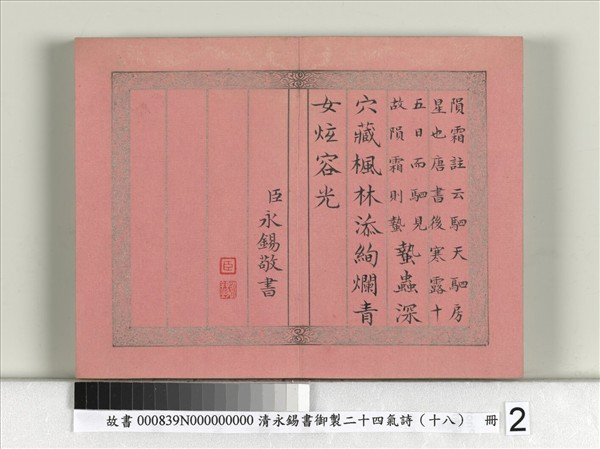 隕霜註云駟天駟房
星也唐書後寒露十
五日而駟見
故隕霜則蟄蟄蟲深
穴藏楓林添絢爛青
女炫容光
臣永錫敬書
臣
故書 000839N000000000 清永錫書御製二十四氣詩（十八） 冊 2